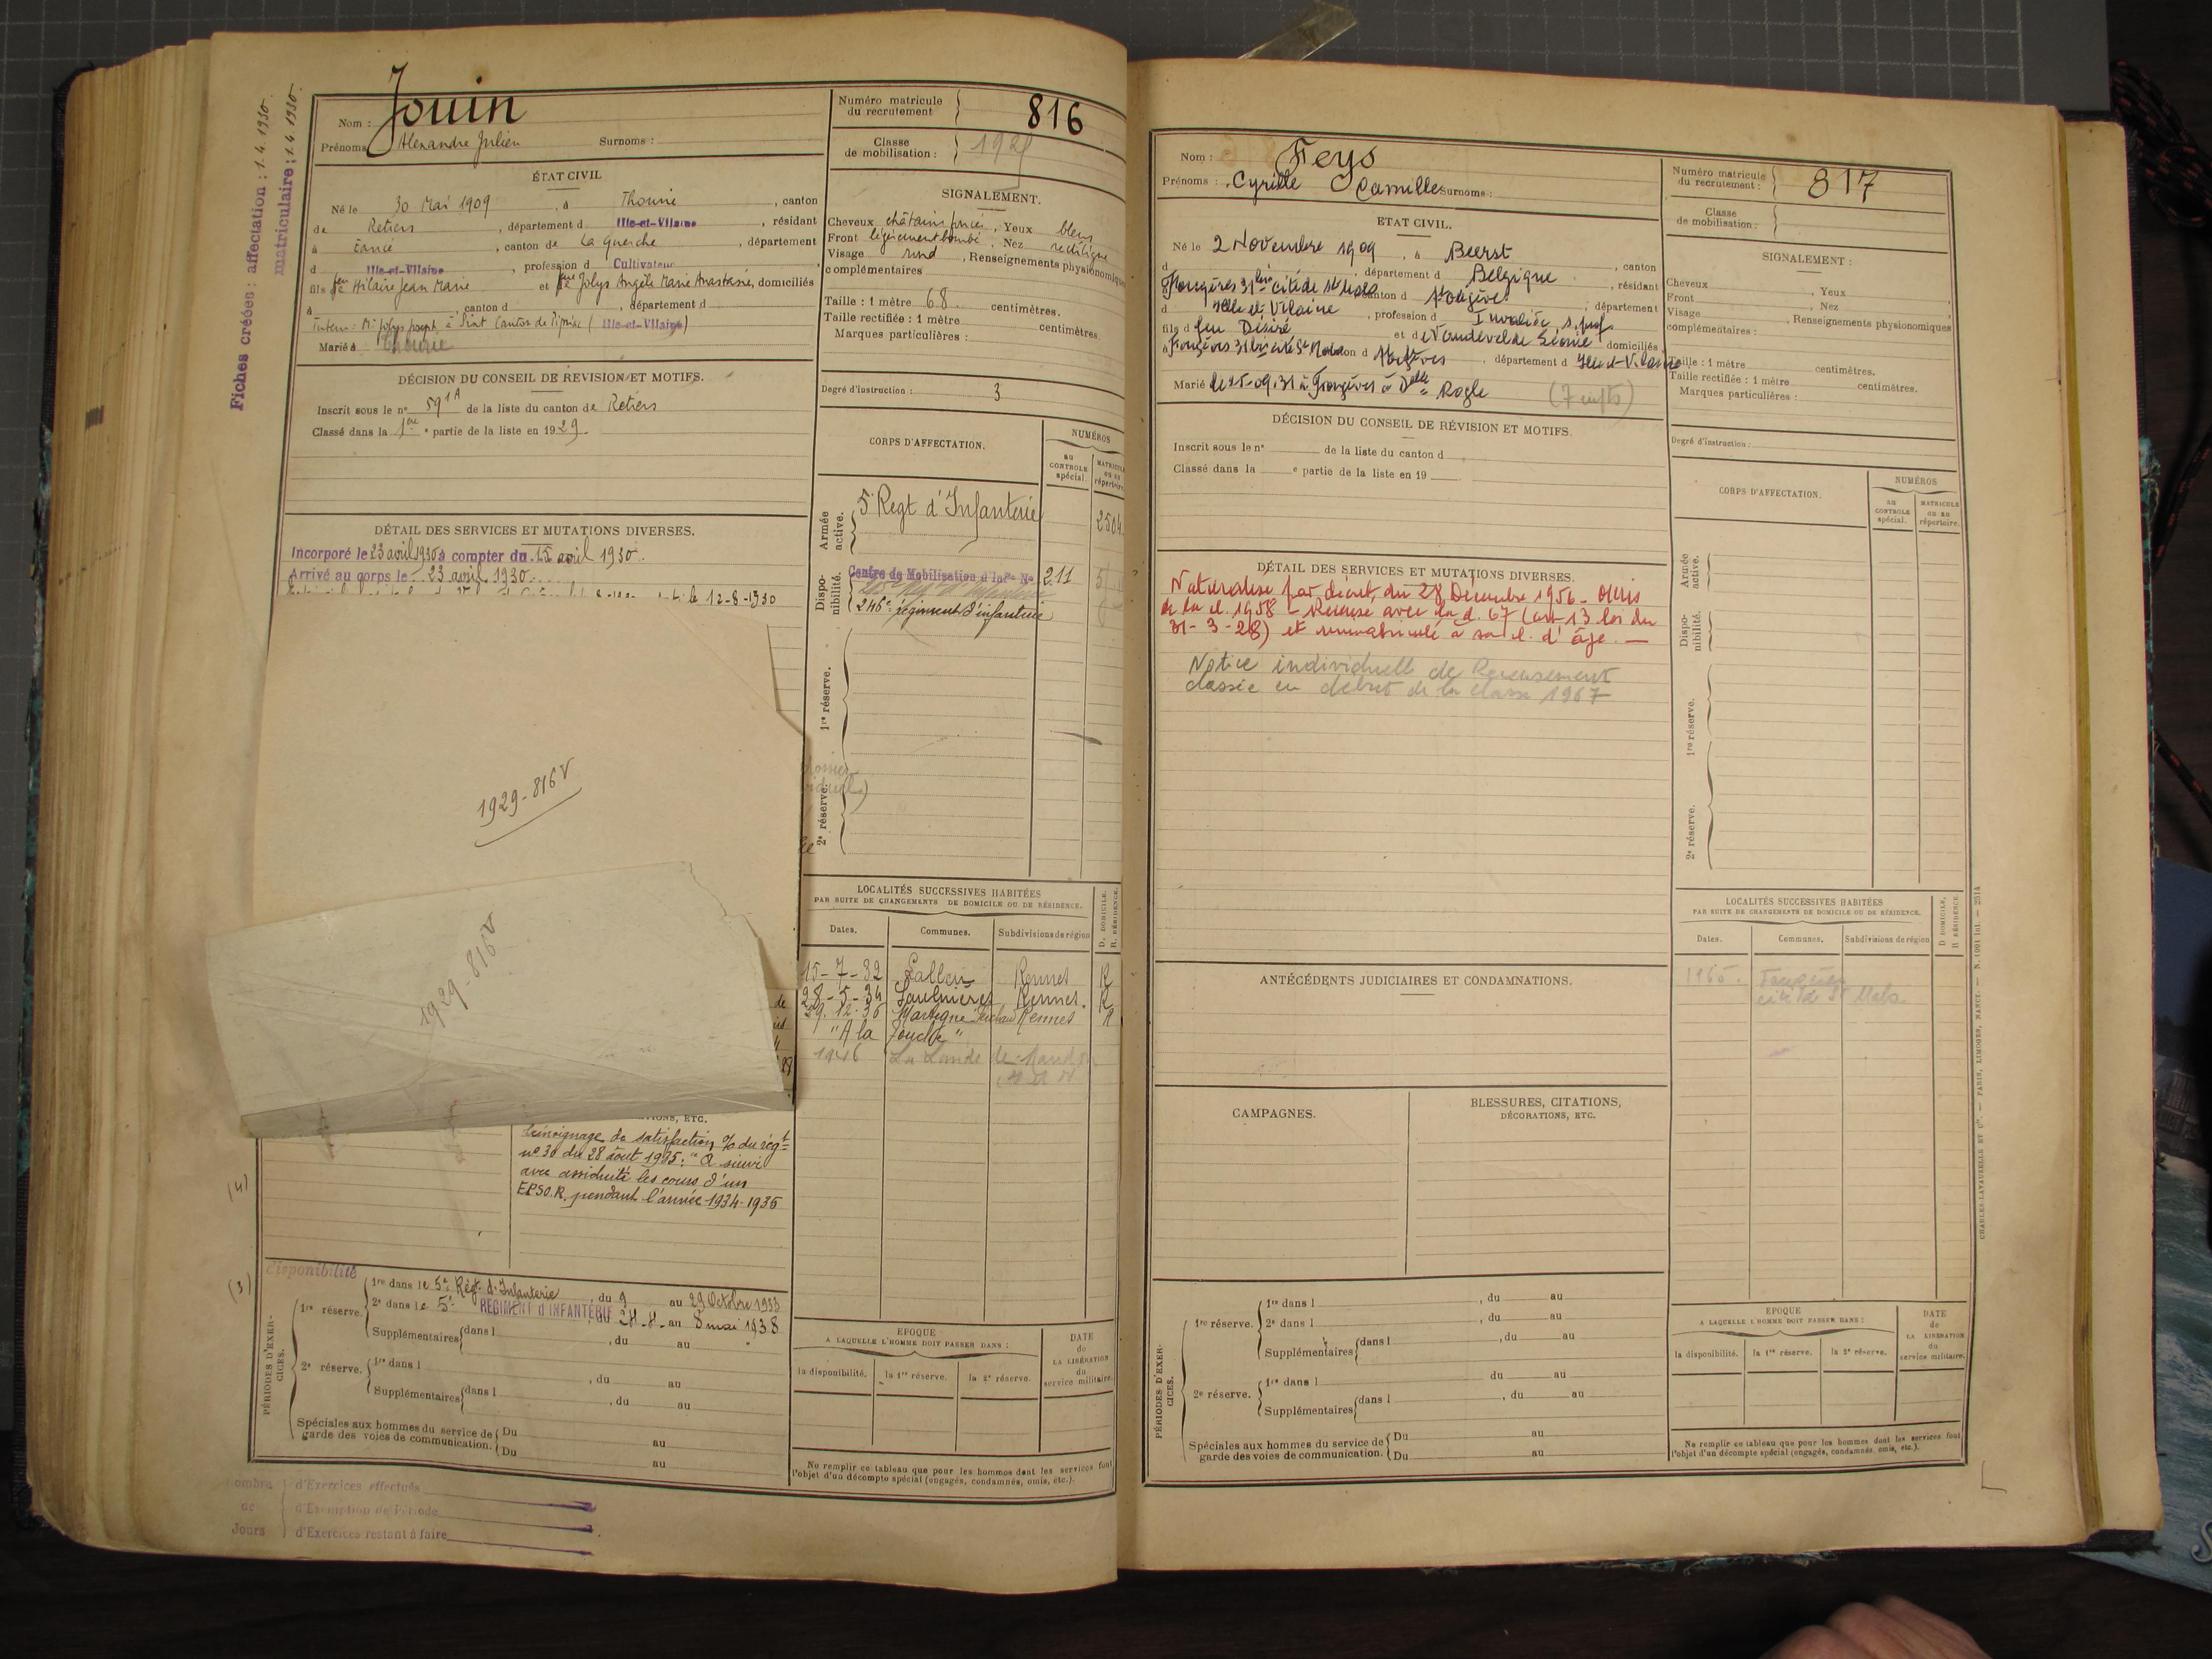 Fiches créées : affectation : 1.4.1930.
matriculaire : 1.4.1930.
Nom : Jouin
Prénoms Alexandre Julien Surnoms :
Numéro matricule du recrutement 816
Classe de mobilisation : 1929
ÉTAT CIVIL
Né le 30 Mai 1909, à Thourie, canton
de Retiers, département d Ille-et-Vilaine, résidant
à , canton de La Guerche, département
d Ille-et-Vilaine, profession d Cultivateur
fils de feu Hilaire Jean Marie et de Jolys Angèle Marie Anastasie, domiciliés
à , canton d , département d
(Ille-et-Vilaine)
Marié à
SIGNALEMENT.
Cheveux châtain foncé, Yeux bleus
Front légèrement bombé, Nez rectiligne
Visage rond, Renseignements physionomiques
complémentaires
Taille : 1 mètre 68 centimètres.
Taille rectifiée : 1 mètre centimètres
Marques particulières :
Degré d'instruction : 3
DÉCISION DU CONSEIL DE RÉVISION ET MOTIFS.
Inscrit sous le n° 591A de la liste du canton de Retiers
Classé dans la 1ère partie de la liste en 1929.
DÉTAIL DES SERVICES ET MUTATIONS DIVERSES.
Incorporé le 23 avril 1930 à compter du 15 avril 1930.
Arrivé au corps le 23 avril 1930.
le 12-8-1930
1929-816 V
1929-816 V
CORPS D'AFFECTATION.
NUMÉROS
au CONTROLE spécial.
MATRICULE ou au répertoire
Armée active.
5e Regt d'Infanterie 2504
Disponibilité.
Centre de Mobilisation d'Infie N° 211
246e régiment d'infanterie
1re réserve.
2e réserve.
LOCALITÉS SUCCESSIVES HABITÉES
PAR SUITE DE CHANGEMENTS DE DOMICILE OU DE RÉSIDENCE.
Dates. Communes. Subdivisions de région D. DOMICILE. R. RÉSIDENCE.
15-7-32 Lalleu Rennes R
28-5-34 Saulnières Rennes. R
29.12.36 Martigné Ferchaud Rennes R
"A la Touche"
1946 La Lande de
ETC.
témoignage de satisfaction % du régt
n° 30 du 28 août 1935: "A suivi
avec assiduité les cours d'un
EPSO.R. pendant l'année 1934-1935
(4)
(3)
Disponibilité
PÉRIODES D'EXERCICES.
1re réserve.
1re dans le 5e Régt d'Infanterie, du 9 au 29 Octobre 1933
2e dans le 5e RÉGIMENT d'INFANTERIE du 24-4- au 8 mai 1938
Supplémentaires dans l , du au
2e réserve.
1re dans l , du au
Supplémentaires dans l , du au
Spéciales aux hommes du service de garde des voies de communication.
Du au
Du au
EPOQUE
A LAQUELLE L'HOMME DOIT PASSER DANS :
la disponibilité. la 1re réserve. la 2e réserve.
DATE de LA LIBÉRATION du service militaire.
Ne remplir ce tableau que pour les hommes dont les services font
l'objet d'un décompte spécial (engagés, condamnés, omis, etc.).
Nombre de Jours
d'Exercices effectués
d'Exemption de Période
d'Exercices restant à faire
Nom : Feys
Prénoms : Cyrille Camille Surnoms :
Numéro matricule du recrutement : 817
Classe de mobilisation :
ETAT CIVIL.
Né le 2 Novembre 1909, à Beerst, canton
d , département d Belgique, résidant
Fougères 31 cité de St Malo canton d Fougères, département
d Ille et Vilaine, profession d Invalide, s. prof
fils d feu Désiré et d Vandevelde Léonie domiciliés
à Fougères 31 cité St Malo canton d Fougères, département d Ille-et-Vilaine
Marié le 25-09-31 à Fougères à Delle Rogle (7 enfts)
SIGNALEMENT :
Cheveux Yeux
Front Nez
Visage , Renseignements physionomiques
complémentaires :
Taille : 1 mètre centimètres.
Taille rectifiée : 1 mètre centimètres.
Marques particulières :
Degré d'instruction :
DÉCISION DU CONSEIL DE RÉVISION ET MOTIFS.
Inscrit sous le n° de la liste du canton d
Classé dans la e partie de la liste en 19
DÉTAIL DES SERVICES ET MUTATIONS DIVERSES.
Naturalisé par décret du 28 Décembre 1956 - Omis
de la cl. 1958 - Recensé avec la cl. 67 (art 13 loi du
31-3-28) et immatriculé à sa cl. d'âge. —
Notice individuelle de Recensement
classée en début de la classe 1967
CORPS D'AFFECTATION.
NUMÉROS
au CONTROLE spécial.
MATRICULE ou au répertoire.
Armée active.
Disponibilité.
1re réserve.
2e réserve.
ANTÉCÉDENTS JUDICIAIRES ET CONDAMNATIONS.
CAMPAGNES.
BLESSURES, CITATIONS, DÉCORATIONS, ETC.
LOCALITÉS SUCCESSIVES HABITÉES
PAR SUITE DE CHANGEMENTS DE DOMICILE OU DE RÉSIDENCE.
Dates. Communes. Subdivisions de région D. DOMICILE. R. RÉSIDENCE.
1965. Fougères
cité de St Malo
PÉRIODES D'EXERCICES.
1re réserve.
1re dans l , du au
2e dans l , du au
Supplémentaires dans l , du au
2e réserve.
1re dans l du au
Supplémentaires dans l , du au
Spéciales aux hommes du service de garde des voies de communication.
Du au
Du au
EPOQUE
A LAQUELLE L'HOMME DOIT PASSER DANS :
la disponibilité. la 1re réserve. la 2e réserve.
DATE de LA LIBÉRATION du service militaire.
Ne remplir ce tableau que pour les hommes dont les services font
l'objet d'un décompte spécial (engagés, condamnés, omis, etc.).
CHARLES-LAVAUZELLE ET Cie. — PARIS, LIMOGES, NANCY.